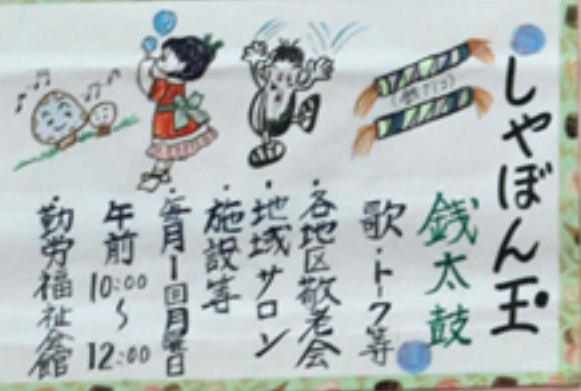 しゃぼん玉
銭太鼓
歌・トーク等
・各地区敬老会
・地域サロン
・施設等
・毎月1回月曜日
午前10:00〜12:00
・勤労福祉会館